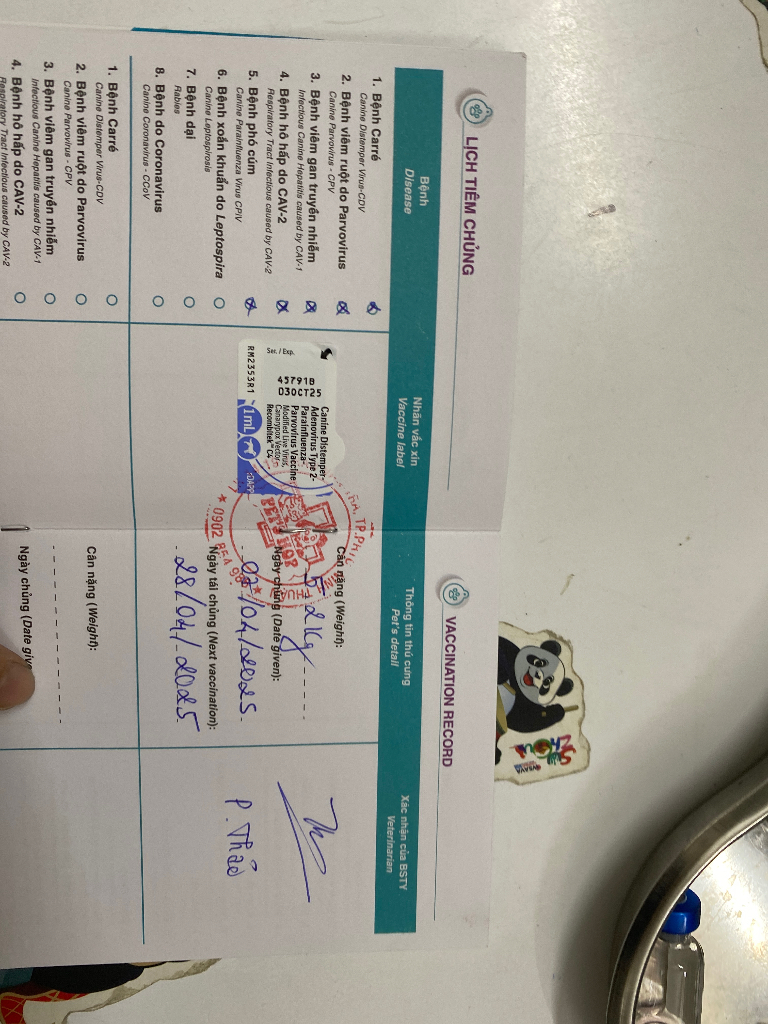 LỊCH TIÊM CHỦNG
VACCINATION RECORD
Bệnh
Disease
Nhãn vắc xin
Vaccine label
Thông tin thú cưng
Pet's detail
Xác nhận của BSTY
Veterinarian
1. Bệnh Carré
Canine Distemper Virus-CDV
2. Bệnh viêm ruột do Parvovirus
Canine Parvovirus - CPV
3. Bệnh viêm gan truyền nhiễm
Infectious Canine Hepatitis caused by CAV-1
4. Bệnh hô hấp do CAV-2
Respiratory Tract Infectious caused by CAV-2
5. Bệnh phó cúm
Canine Parainfluenza Virus CPiV
6. Bệnh xoắn khuẩn do Leptospira
Canine Leptospirosis
7. Bệnh dại
Rabies
8. Bệnh do Coronavirus
Canine Coronavirus - CCoV
Ser. / Exp.
45791B
03OCT25
RM2353R1
Canine Distemper-
Adenovirus Type 2-
Parainfluenza-
Parvovirus Vaccine
Modified Live Virus,
Canarypox Vector
Recombitek C4
1mL
TP.PH
0902
Cân nặng (Weight):
5.2Kg
Ngày chủng (Date given):
07/04/2025
Ngày tái chủng (Next vaccination):
28/04/2025
P. Thảo
1. Bệnh Carré
Canine Distemper Virus-CDV
2. Bệnh viêm ruột do Parvovirus
Canine Parvovirus - CPV
3. Bệnh viêm gan truyền nhiễm
Infectious Canine Hepatitis caused by CAV-1
4. Bệnh hô hấp do CAV-2
Respiratory Tract Infectious caused by CAV-2
Cân nặng (Weight):
Ngày chủng (Date give